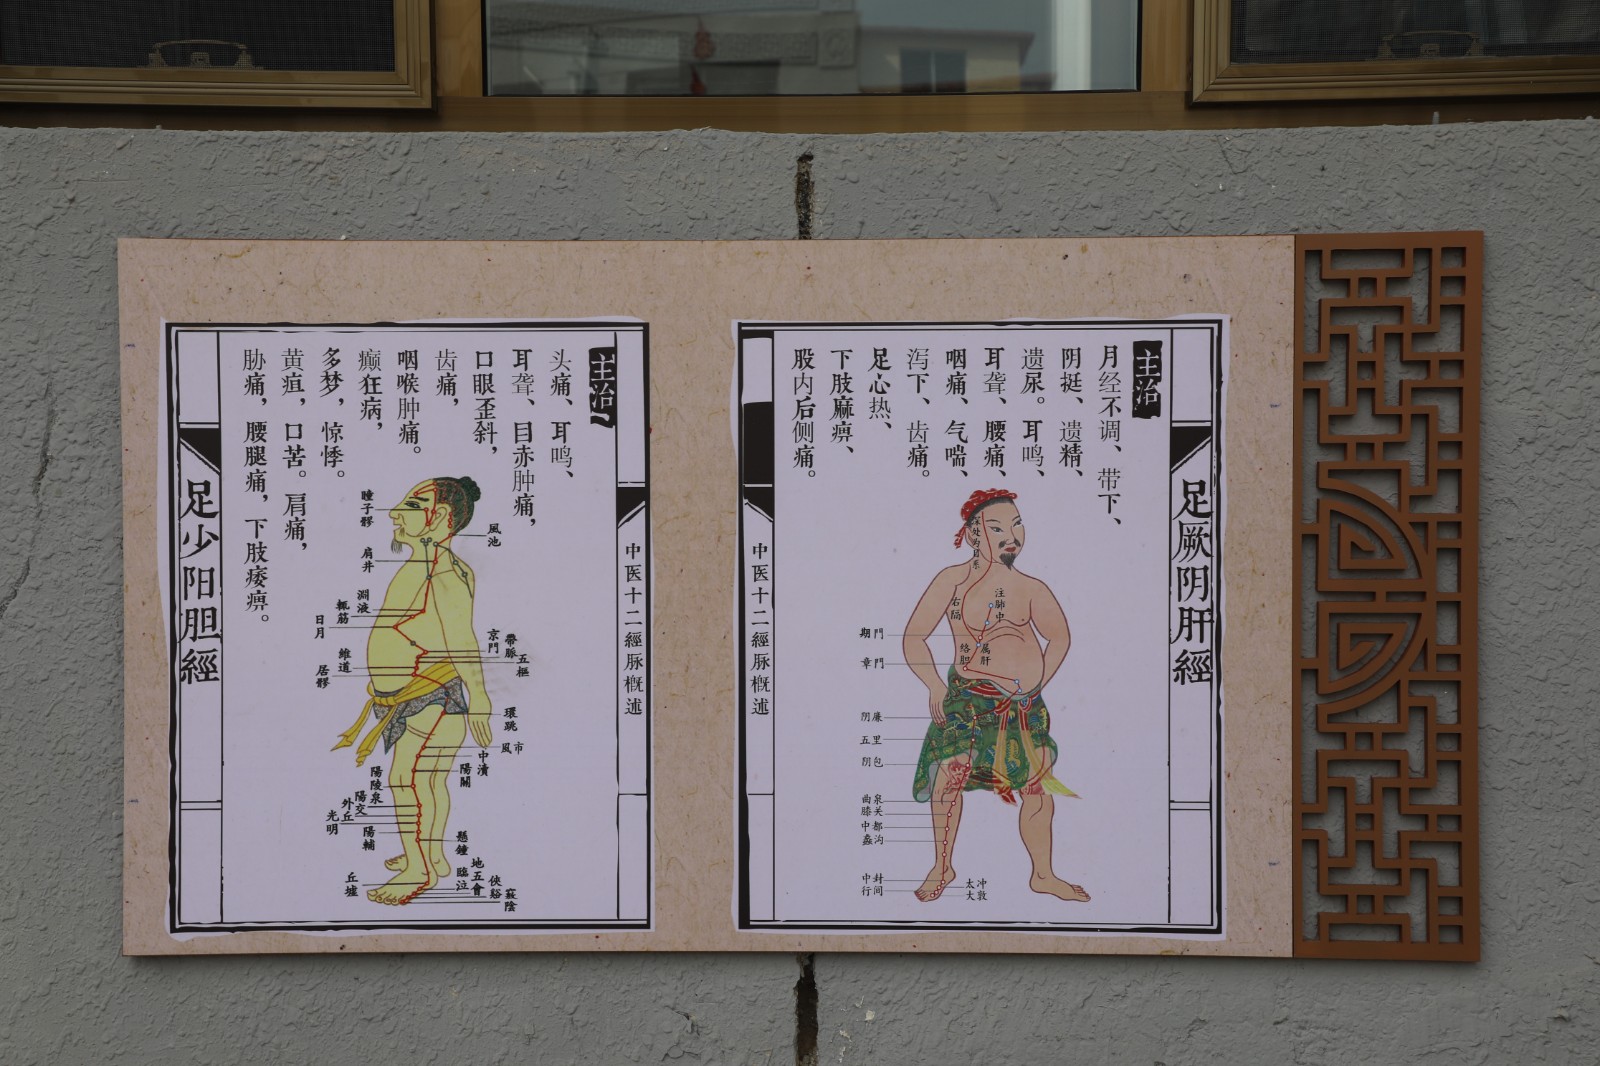 足厥阴肝經
主治
月经不调、带下、
阴挺、遗精、
遗尿。耳鸣、
耳聋、腰痛、
咽痛、气喘、
泻下、齿痛。
足心热、
下肢麻痹、
股内后侧痛。
注肺中
右隔
期門
属肝
络胆
章門
阴廉
五里
阴包
曲泉
膝关
中都
蠡沟
中封
行间
太冲
大敦
中医十二經脉概述
中医十二經脉概述
主治
头痛、耳鸣、
耳聋、目赤肿痛，
口眼歪斜，
齿痛，
咽喉肿痛。
癫狂病，
多梦，惊悸。
黄疸，口苦。肩痛，
胁痛，腰腿痛，下肢痿痹。
瞳子髎
風池
肩井
淵液
輒筋
日月
京門
帶脈
五樞
維道
居髎
環跳
風市
中瀆
陽關
陽陵泉
陽交
外丘
光明
陽輔
懸鐘
丘墟
臨泣
地五會
俠谿
竅陰
足少阳胆經